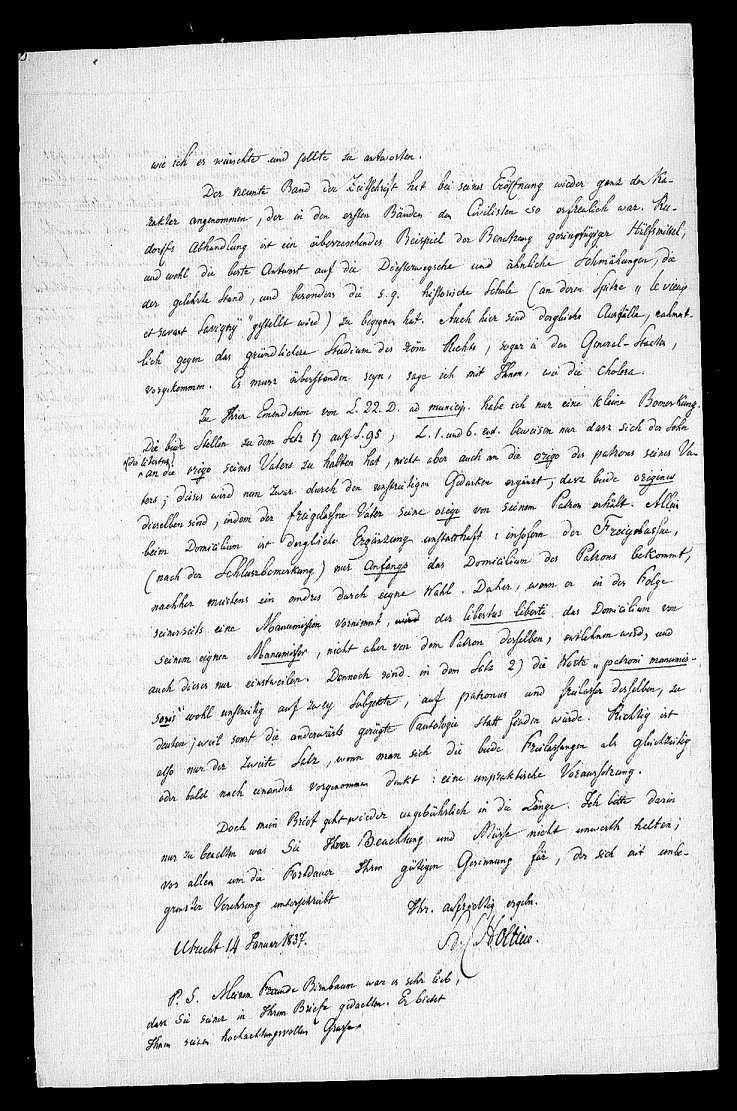 wie ich es wünschte und sollte zu antworten.
Der neunte Band der Zeitschrift hat bei seiner Eröffnung wieder ganz den Ka-
rakter angenommen, der in den ersten Bänden den Civilisten so erfreulich war. Ru-
dorffs Abhandlung ist ein überraschendes Beispiel der Benutzung geringfügiger Hülfsmittel,
und wohl die beste Antwort auf die Diesterwegsche und ähnliche Schmähungen, die
der gelehrte Stand, und besonders die s.g. historische Schule (an deren Spitze „le vieux
et savant Savigny" gestellt wird) zu begegnen hat. Auch hier sind dergleiche Ausfälle, nahmt-
lich gegen das gründlichere Studium des röm Rechts, sogar in den General-Staaten,
vorgekommen. Es muss überstanden seyn, sage ich mit Ihnen, wie die Cholera.
Zu Ihrer Emendation von L. 22. D. ad municip. habe ich nur eine kleine Bemerkung.
Die beide Stellen zu dem Satz 1) auf S. 95, L. 1. und 6. eod. beweisen nur dasz sich der Sohn
an die origo seines Vaters zu halten hat, nicht aber auch an die origo des patrons seines Va-
ters; dieses wird nun zwar durch den unstreitigen Gedanken ergänzt, dasz beide origines
dieselben sind, indem der freigelassne Vater seine origo von seinem Patron erhält. Allein
beim Domicilium ist dergleiche Ergänzung unstatthaft: insofern der Freigelassne,
(nach der Schluszbemerkung) nur Anfangs das Domicilium des Patrons bekommt,
nachher meistens ein andres durch eigne Wahl. Daher, wenn er in der Folge
seinerseits eine Manumission vornimmt, wird der libertus liberti das Domicilium von
seinem eignen Manumissor, nicht aber von dem Patron desselben, entlehnen wird, und
auch dieses nur einstweilen. Dennoch sind in dem Satz 2) die Worte „patroni manumis-
soris" wohl unstreitig auf zwey Subjekte, auf patronus und freilasser desselben, zu
deuten; weil sonst die anderwärts gerügte Tautologie statt finden würde. Richtig ist
also nur der zweite Satz, wenn man sich die beide Freilassungen als gleichzeitig
oder bald nach einander vorgenommen denkt: eine unpraktische Voraussetzung.
Doch mein Brief geht wieder ungebührlich in die Länge. Ich bitte darin
nur zu beachten was Sie Ihrer Beachtung und Müsse nicht unwerth halten;
vor allen um die Fortdauer Ihrer gütigen Gesinnung für, der sich mit unbe-
grenzter Verehrung unterschreibt
Ihr. aufrichtig ergeb.
Utrecht 14 Januar 1837.
Holtius.
P. S. Meinem Freunde Birnbaum war es sehr lieb,
dasz Sie seiner in Ihrem Briefe gedachten. Er bietet
Ihnen seinen hochachtungsvollen Grusz.